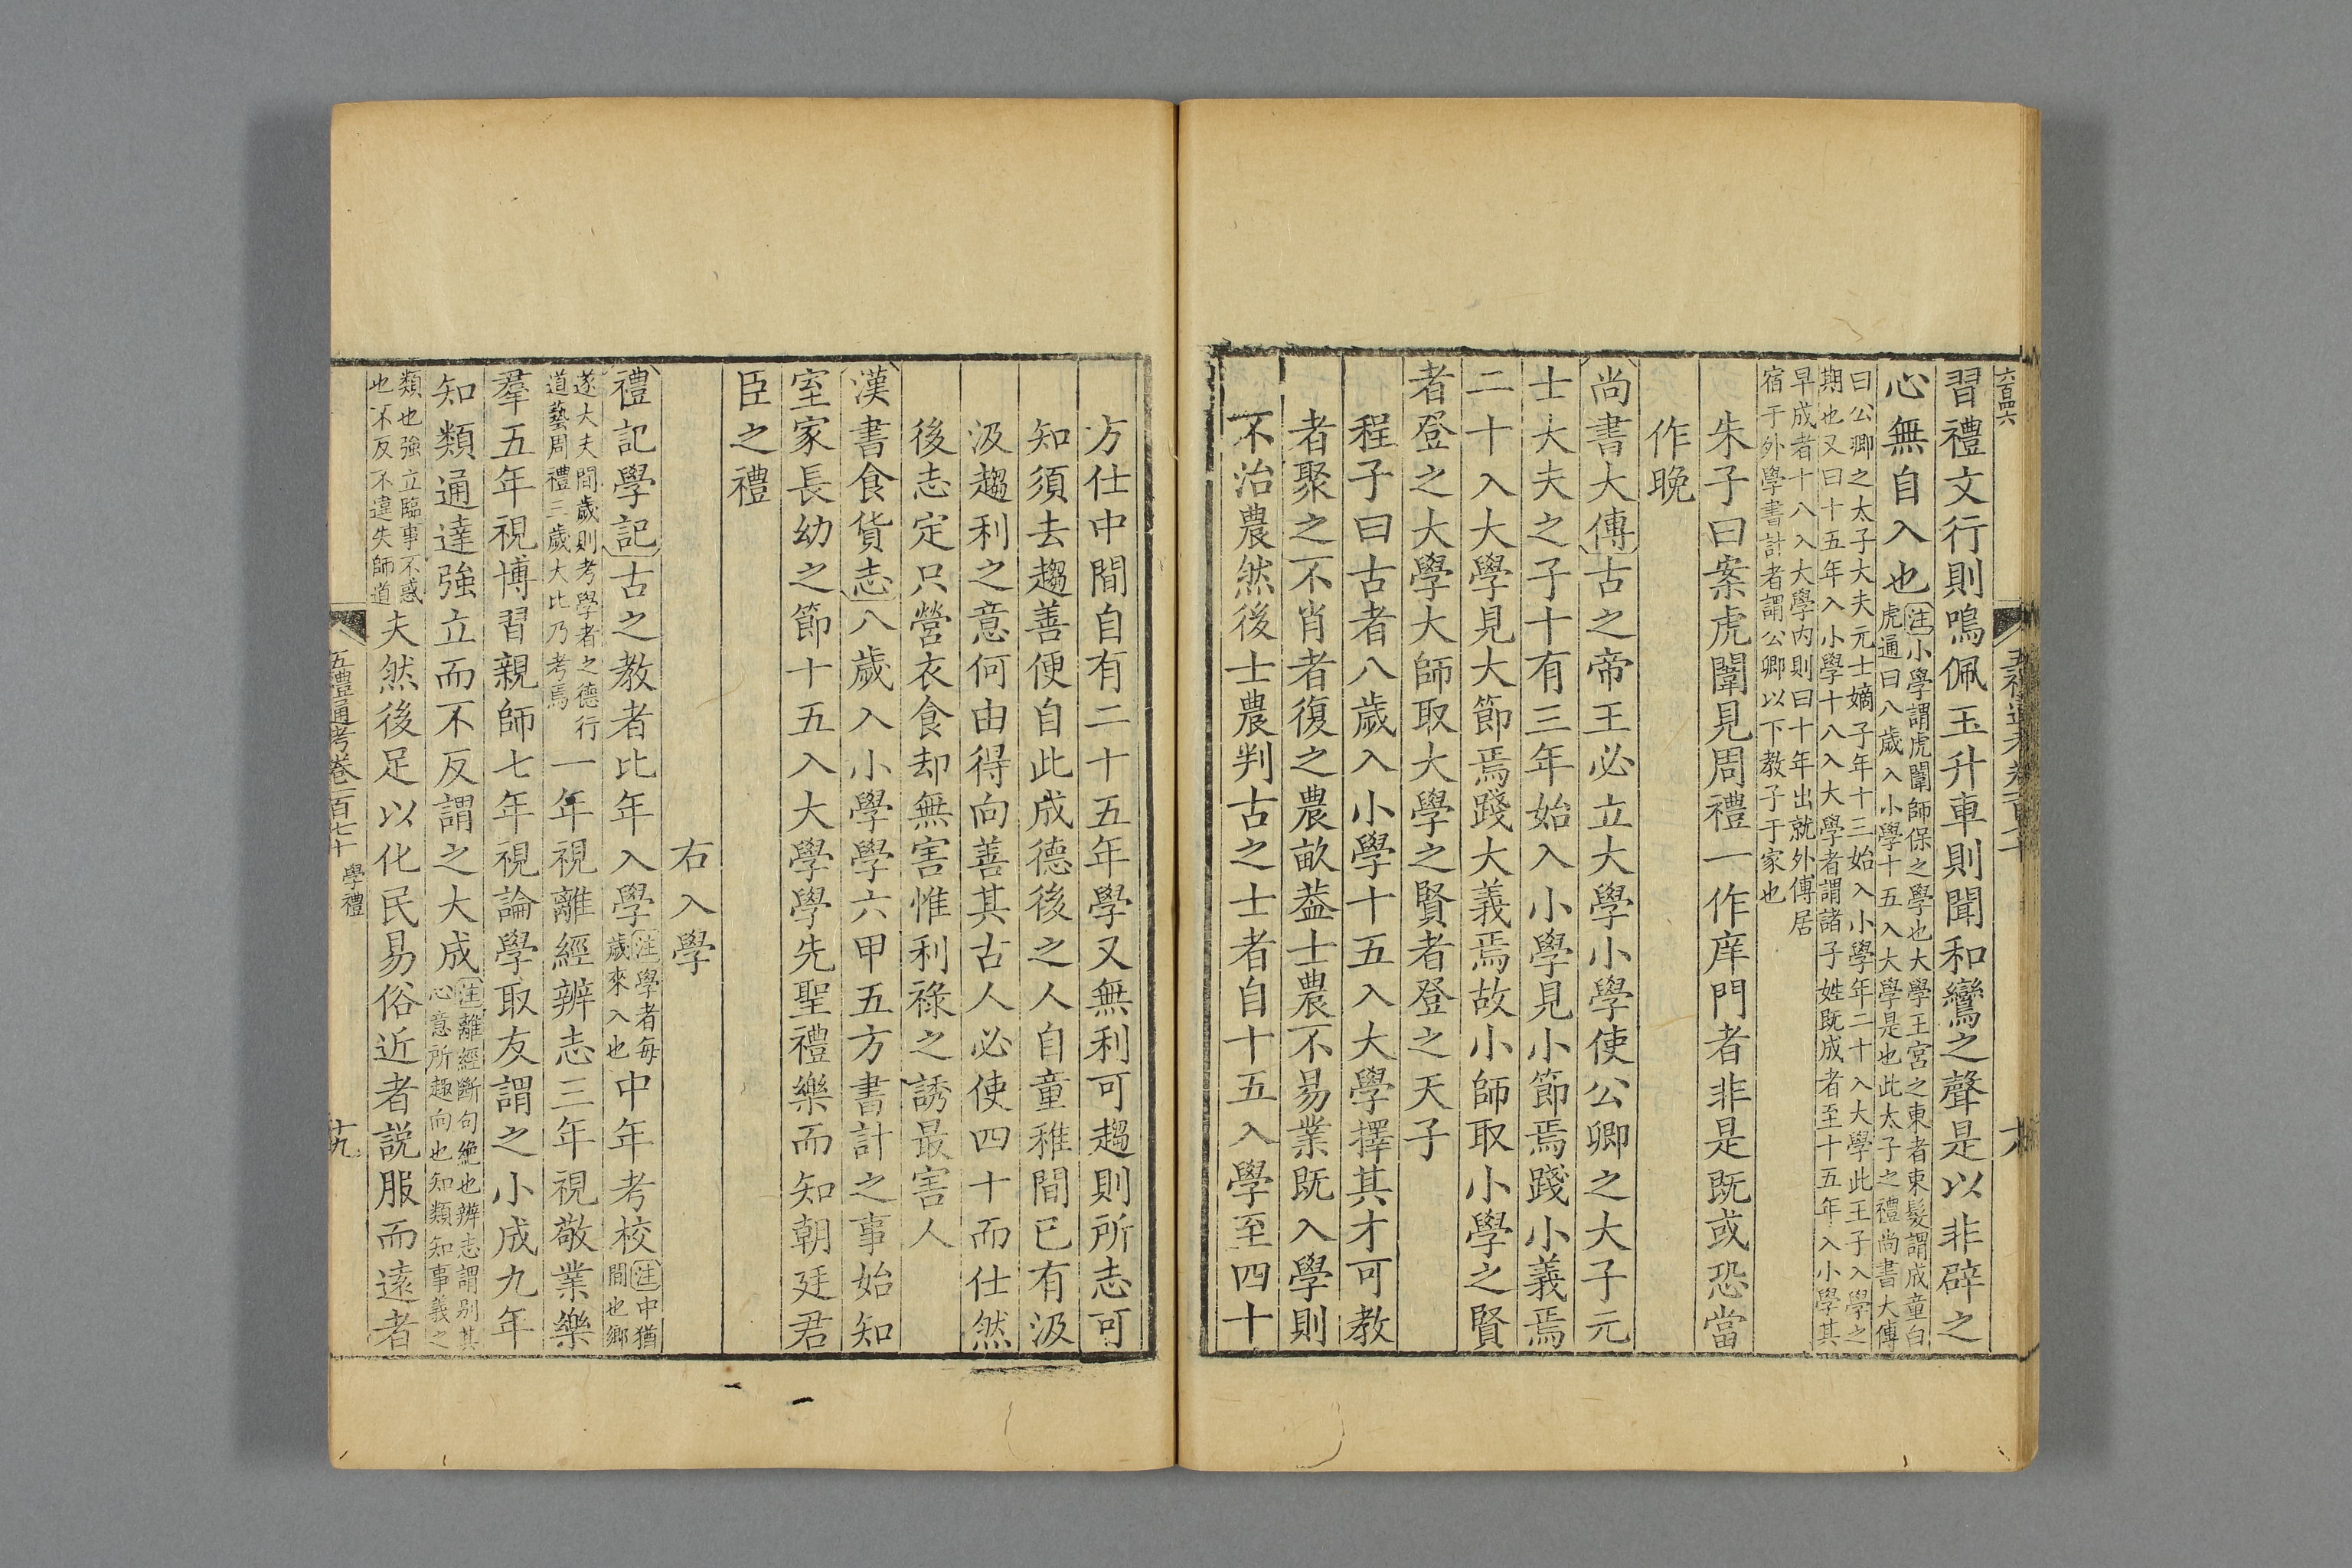 六百四六
習禮文行則鳴佩玉升車則聞和鸞之聲是以非辟之
心無自入也
注小學謂虎闈師保之學也大學王宮之東者束髮謂成童白
虎通曰八歲入小學十五入大學是也此太子之禮尚書大傳
曰公卿之太子大夫元士嫡子年十三始入小學年二十入大學此王子入學之
期也又曰十五年入小學十八入大學者謂諸子姓既成者至十五年入小學其
早成者十八入大學內則曰十年出就外傅居
宿于外學書計者謂公卿以下教子于家也
朱子曰案虎闈見周禮一作庠門者非是既或恐當
作晚
尚書大傳古之帝王必立大學小學使公卿之大子元
士大夫之子十有三年始入小學見小節焉踐小義焉
二十入大學見大節焉踐大義焉故小師取小學之賢
者登之大學大師取大學之賢者登之天子
程子曰古者八歲入小學十五入大學擇其才可教
者聚之不肖者復之農畝葢士農不易業既入學則
不治農然後士農判古之士者自十五入學至四十
方仕中間自有二十五年學又無利可趨則所志可
知須去趨善便自此成德後之人自童稚間已有汲
汲趨利之意何由得向善其古人必使四十而仕然
後志定只營衣食却無害惟利祿之誘最害人
漢書食貨志八歲入小學學六甲五方書計之事始知
室家長幼之節十五入大學學先聖禮樂而知朝廷君
臣之禮
右入學
禮記學記古之教者比年入學
注學者每
歲來入也
中年考校
注中猶
間也鄉
遂大夫間歲則考學者之德行
道藝周禮三歲大比乃考焉
一年視離經辨志三年視敬業樂
羣五年視博習親師七年視論學取友謂之小成九年
知類通達強立而不反謂之大成
注離經斷句絶也辨志謂别其
心意所趣向也知類知事義之
類也強立臨事不惑
也不反不違失師道
夫然後足以化民易俗近者說服而遠者
五禮通考卷一百七十 學禮
十九